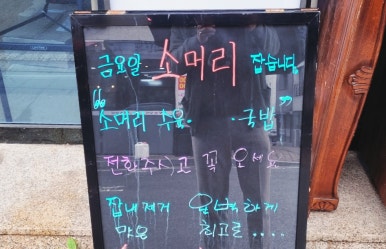 금요일 소머리 잡습니다
"소머리 수육. .국밥"
전화주시고 꼭 오세요
잡내제거 완벽하게
맛은 최고로....